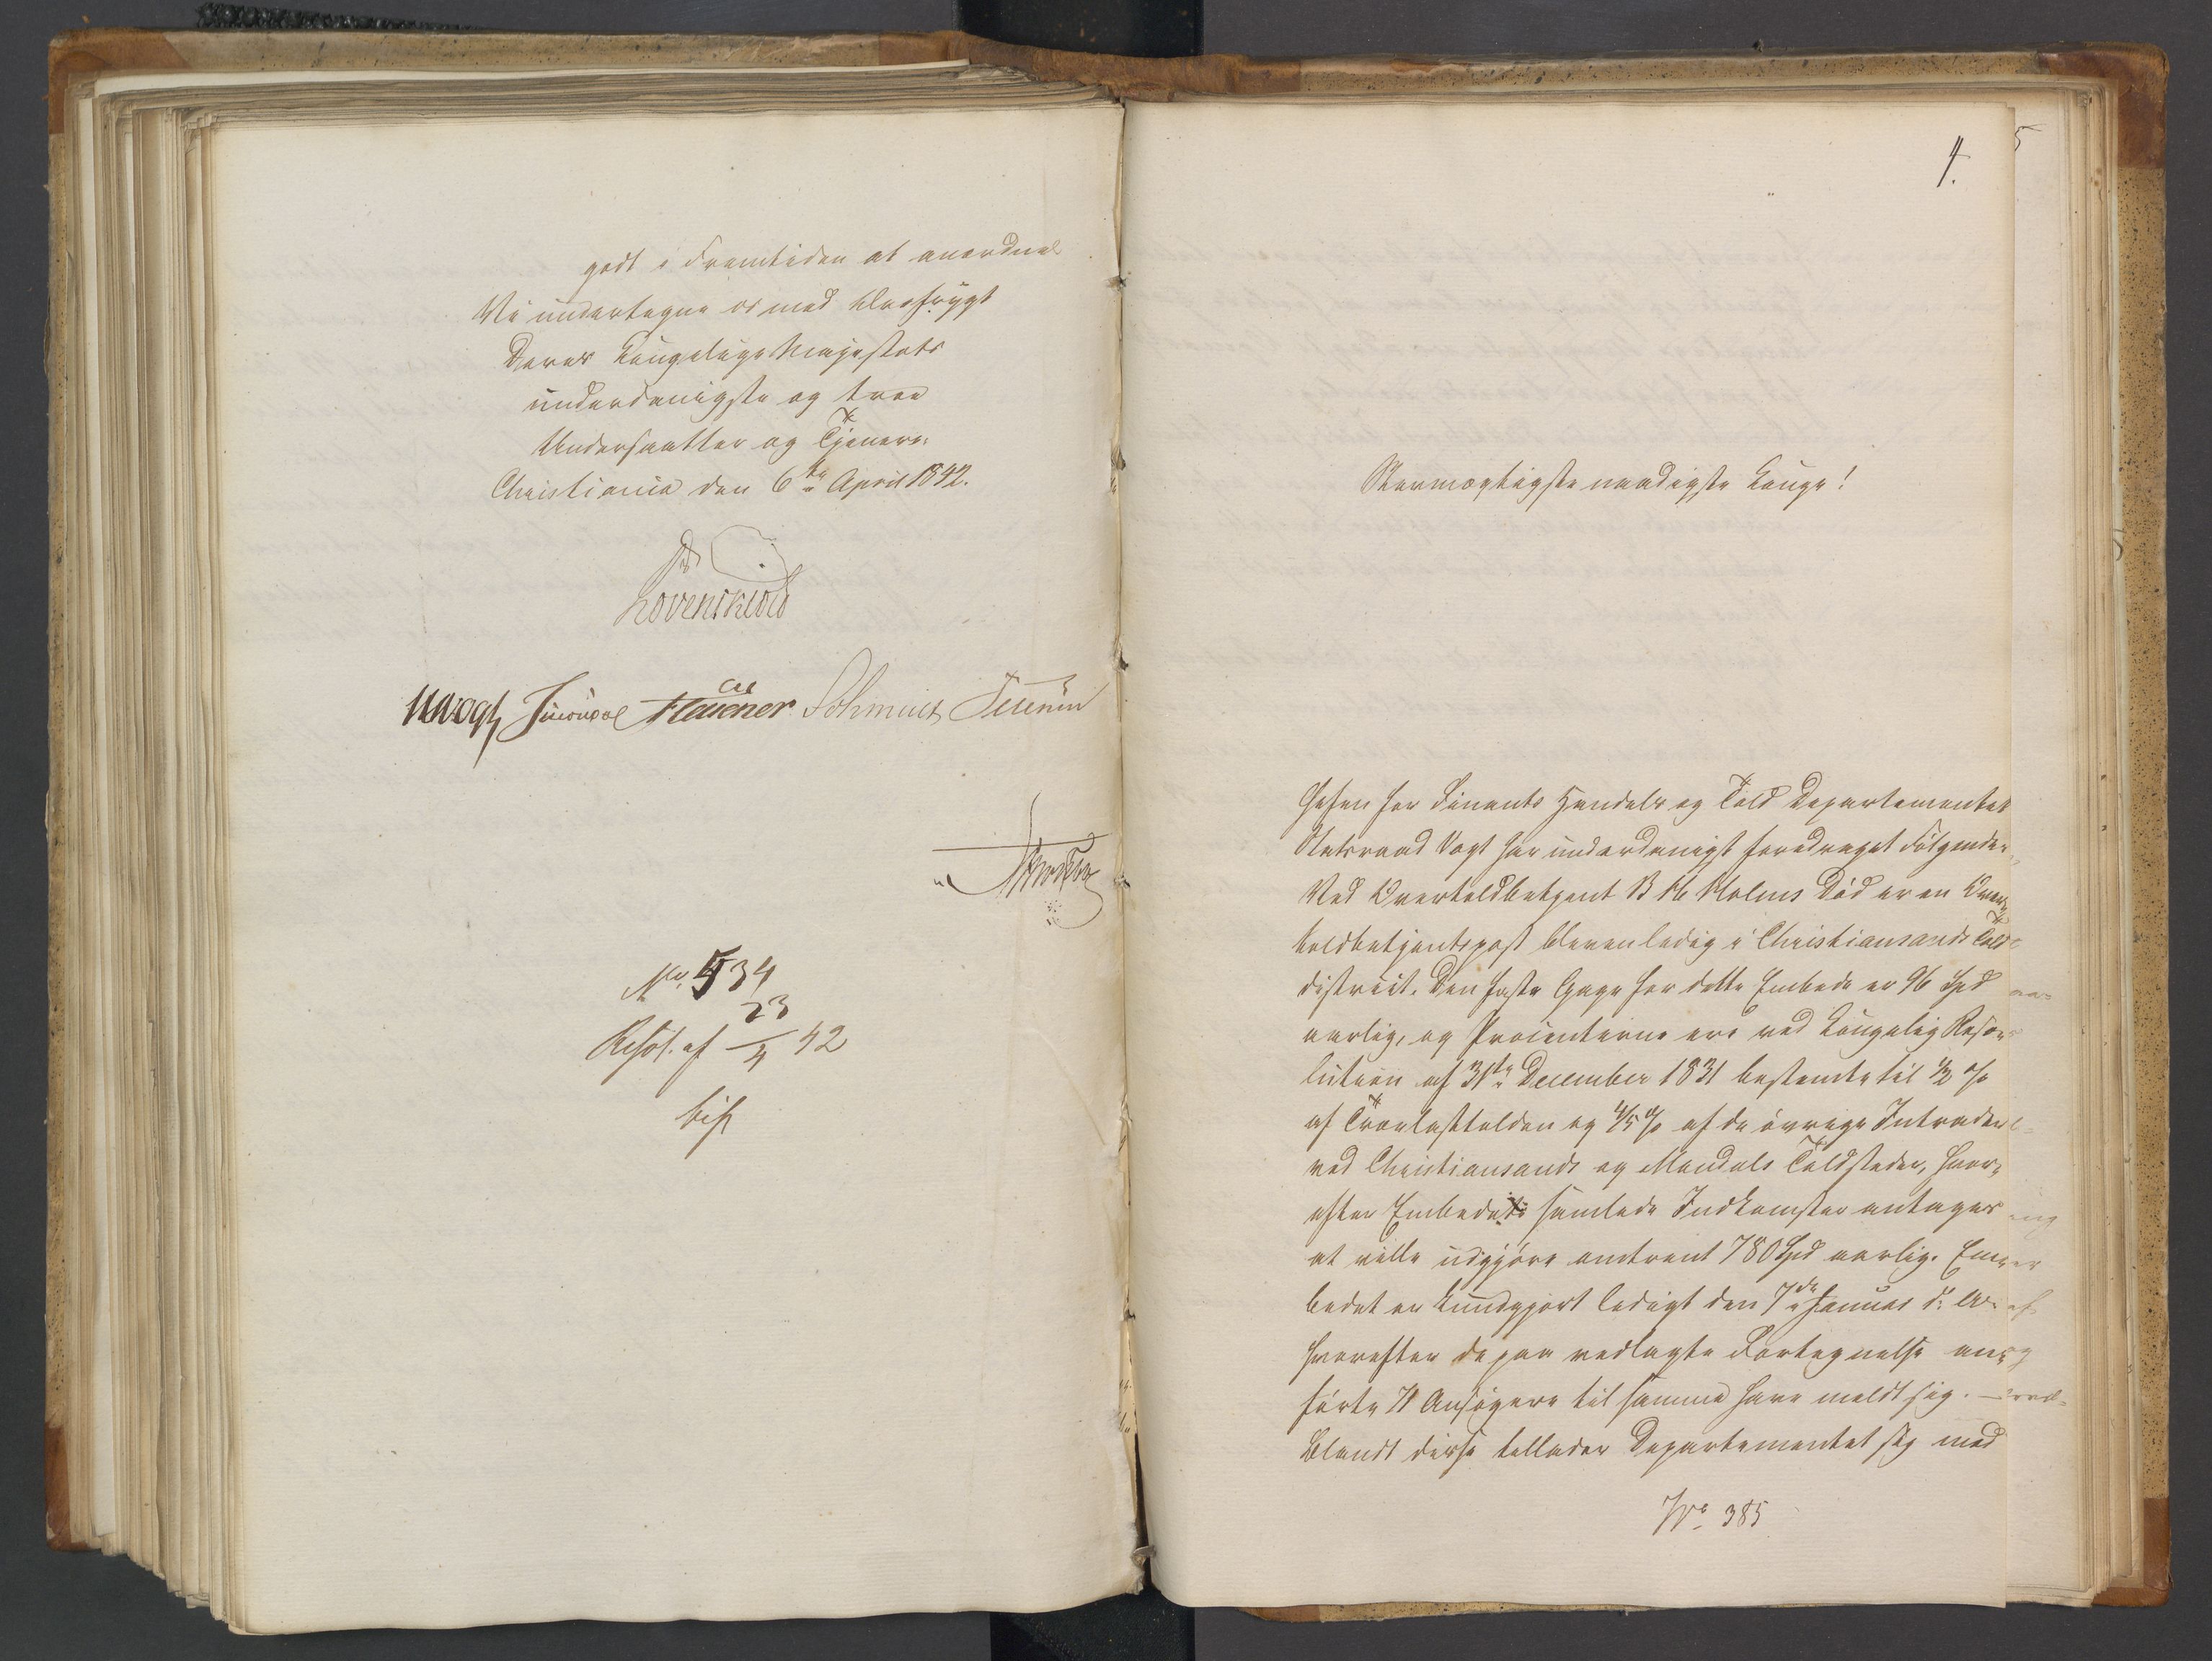 godt i Fremtiden at anordne
Vi undertegne os med Ærefrygt
Deres Kongelige Majestæts
underdanigste og troe
Undersaatter og Tjenere.
Christiania den 6te April 1842.
Løvenskiold
Vogt
No 534
Resol. af 23/4 42
4.
5
Stormægtigste naadigste Konge!
Chefen for Finants Handels og Told Departementet
Statsraad Vogt har underdanigst foredraget Følgende:
Ved Overtoldbetjent B H Holms Død er en Over„
toldbetjentpost bleven ledig i Christiansands Told„
district. Den faste Gage for dette Embede er 96 Spd
aarlig, og Procenterne ere ved Kongelig Reso„
lution af 31te December 1831 bestemte til ½ %
af Trælasttolden og 4/5 % af de øvrige Intrader
ved Christiansands og Mandals Toldsteder, hvor„
efter Embedets samlede Indkomster antages
at ville udgjøre omtrent 780 Spd aarlig. Em„
bedet er kundgjort ledigt den 7de Januar d: A:
hvorefter de paa vedlagte Fortegnelse an„
førte 71 Ansøgere til samme have meldt sig. —
Blandt disse tillader Departementet sig med
No 385